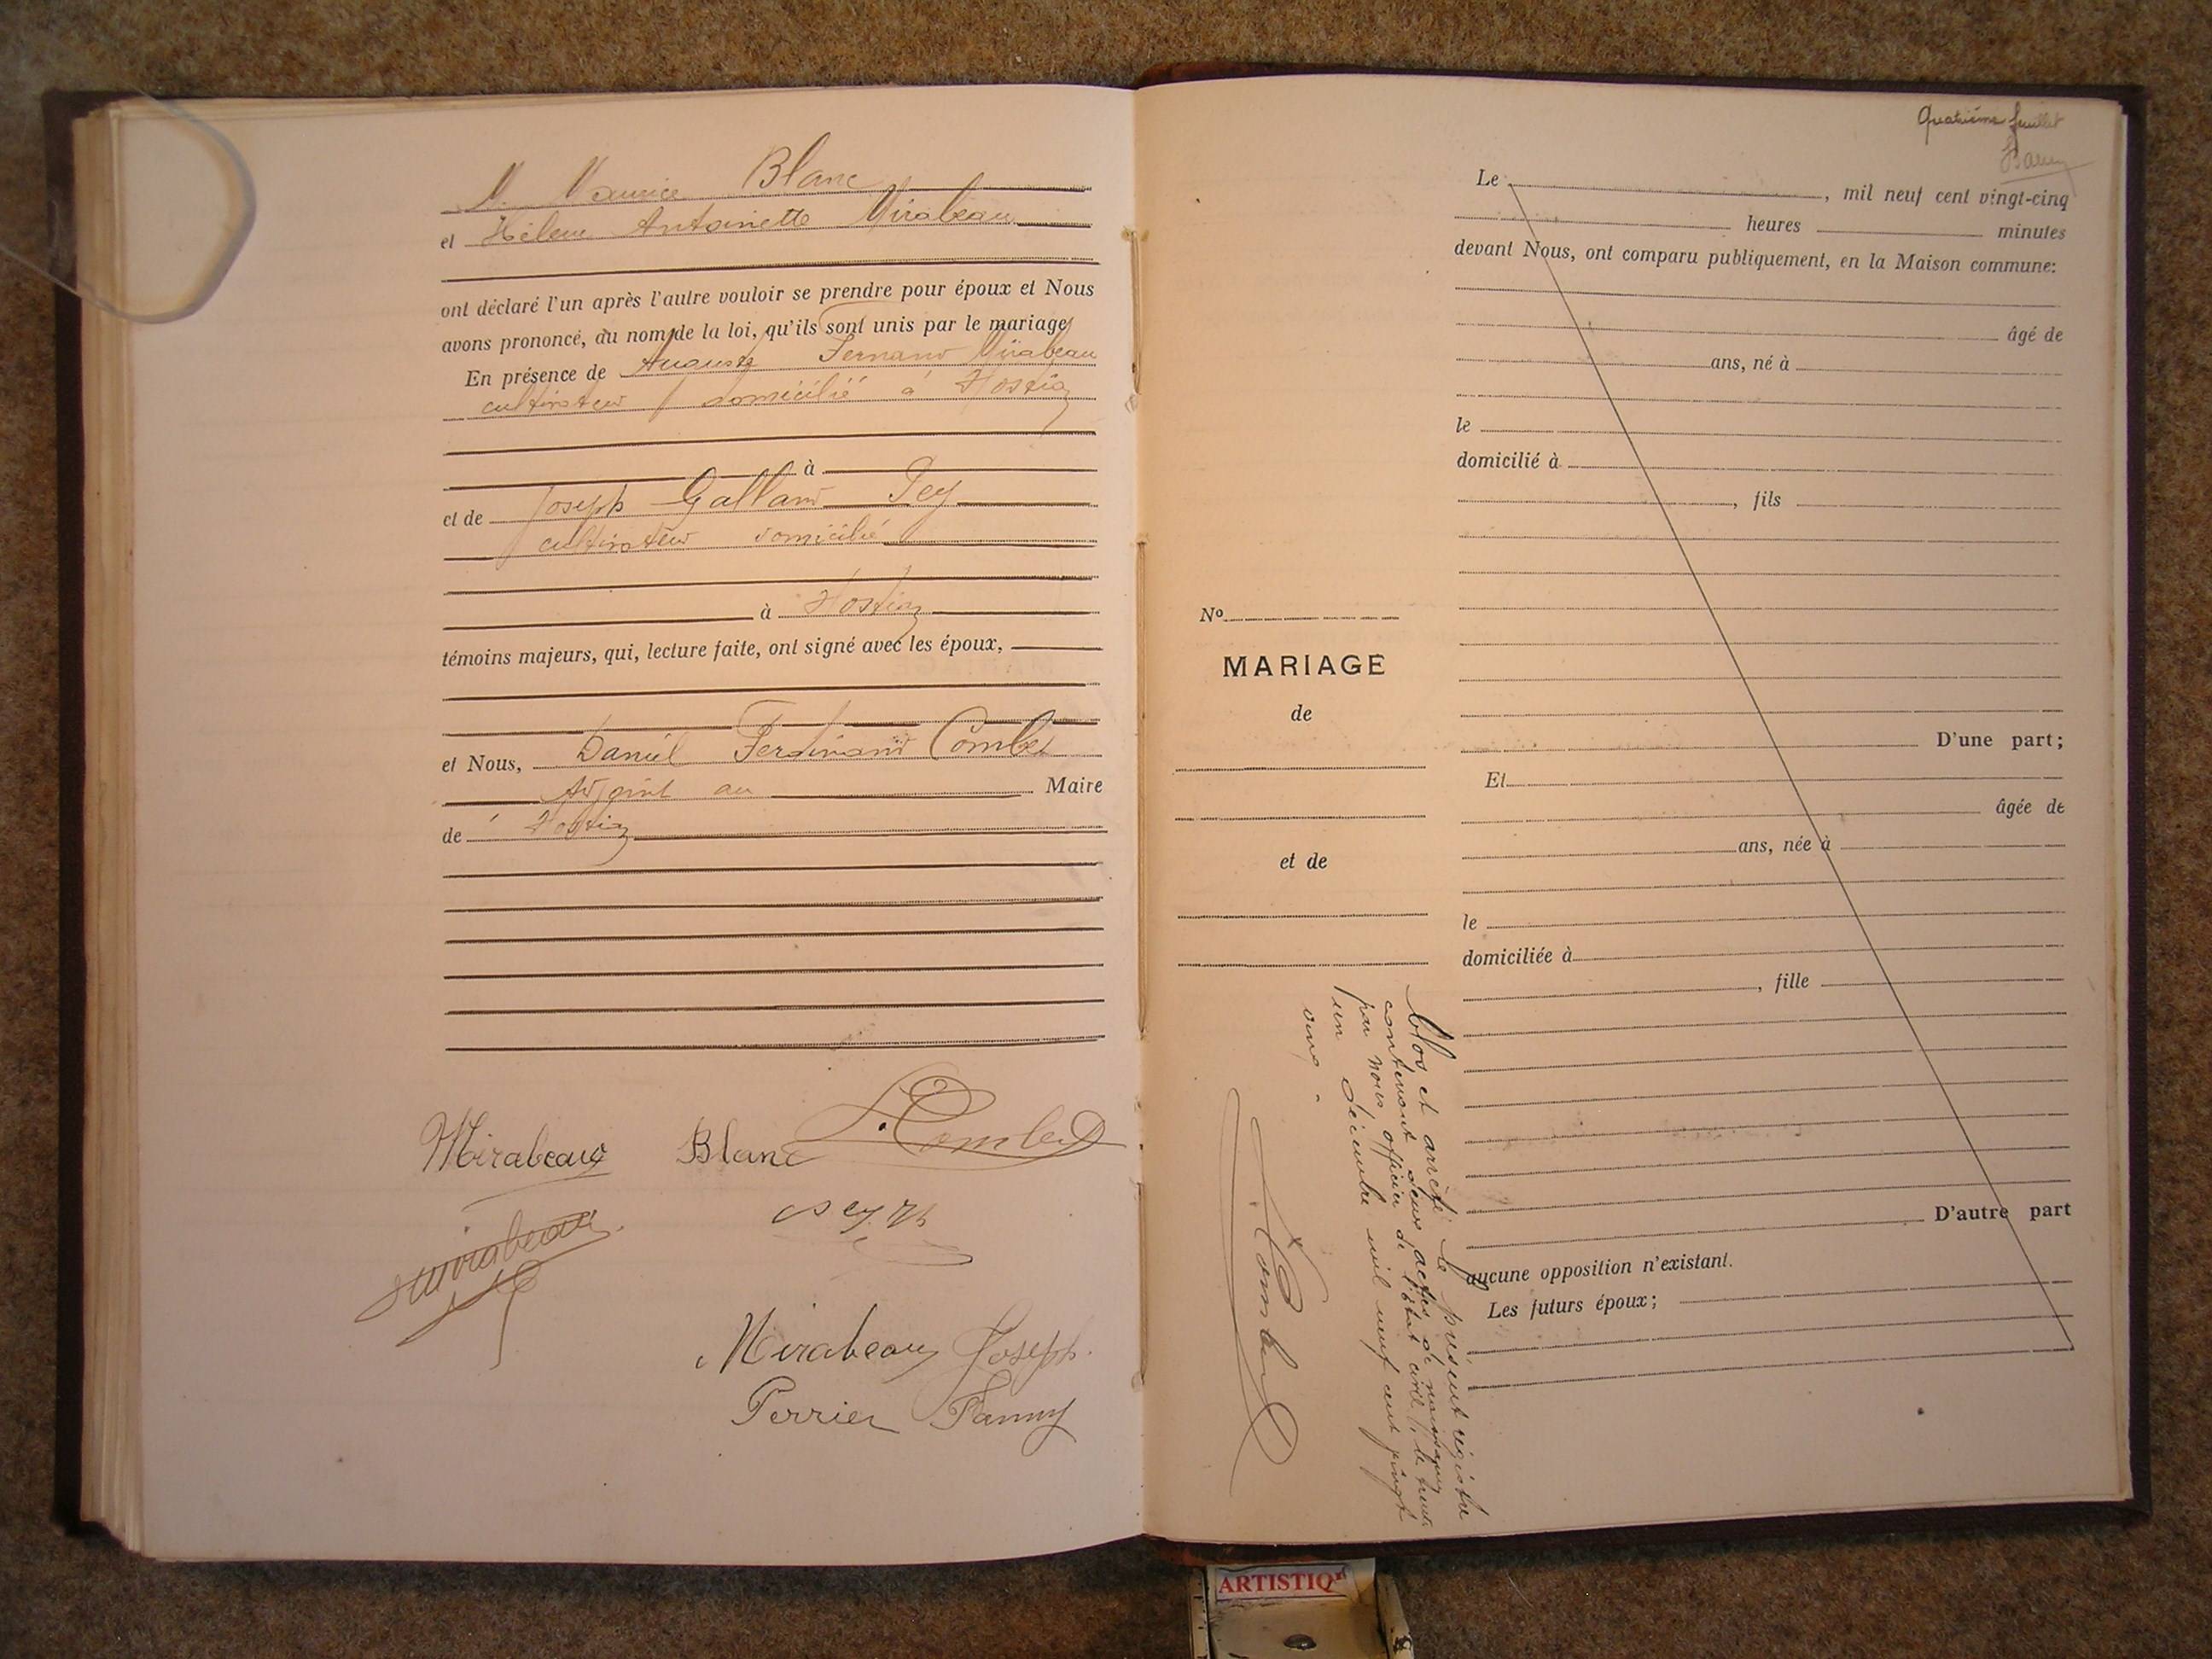 M. Maurice Blanc
et Hélène Antoinette Mirabeau
ont déclaré l'un après l'autre vouloir se prendre pour époux et Nous
avons prononcé, au nom de la loi, qu'ils sont unis par le mariage
En présence de Auguste Fernand Mirabeau
cultivateur domicilié à Hostiaz
à
et de Joseph Galland Pey
cultivateur domicilié
à Hostiaz
témoins majeurs, qui, lecture faite, ont signé avec les époux,
et Nous, Daniel Ferdinand Combet
Adjoint au Maire
de Hostiaz
Mirabeau Blanc Combet
Mirabeau
Mirabeau Joseph
Perrier Fanny
Quatrième feuillet
Le , mil neuf cent vingt-cinq
heures minutes
devant Nous, ont comparu publiquement, en la Maison commune:
âgé de
ans, né à
le
domicilié à
, fils
No
MARIAGE
de
et de
D'une part;
Et
âgée de
ans, née à
le
domiciliée à
, fille
D'autre part
aucune opposition n'existant.
Les futurs époux;
Clos et arrêté le présent régistre
contenant deux actes de mariages
par nous officier de l'état civil, le trente
un décembre mil neuf cent vingt
cinq.
Combet
ARTISTIQ